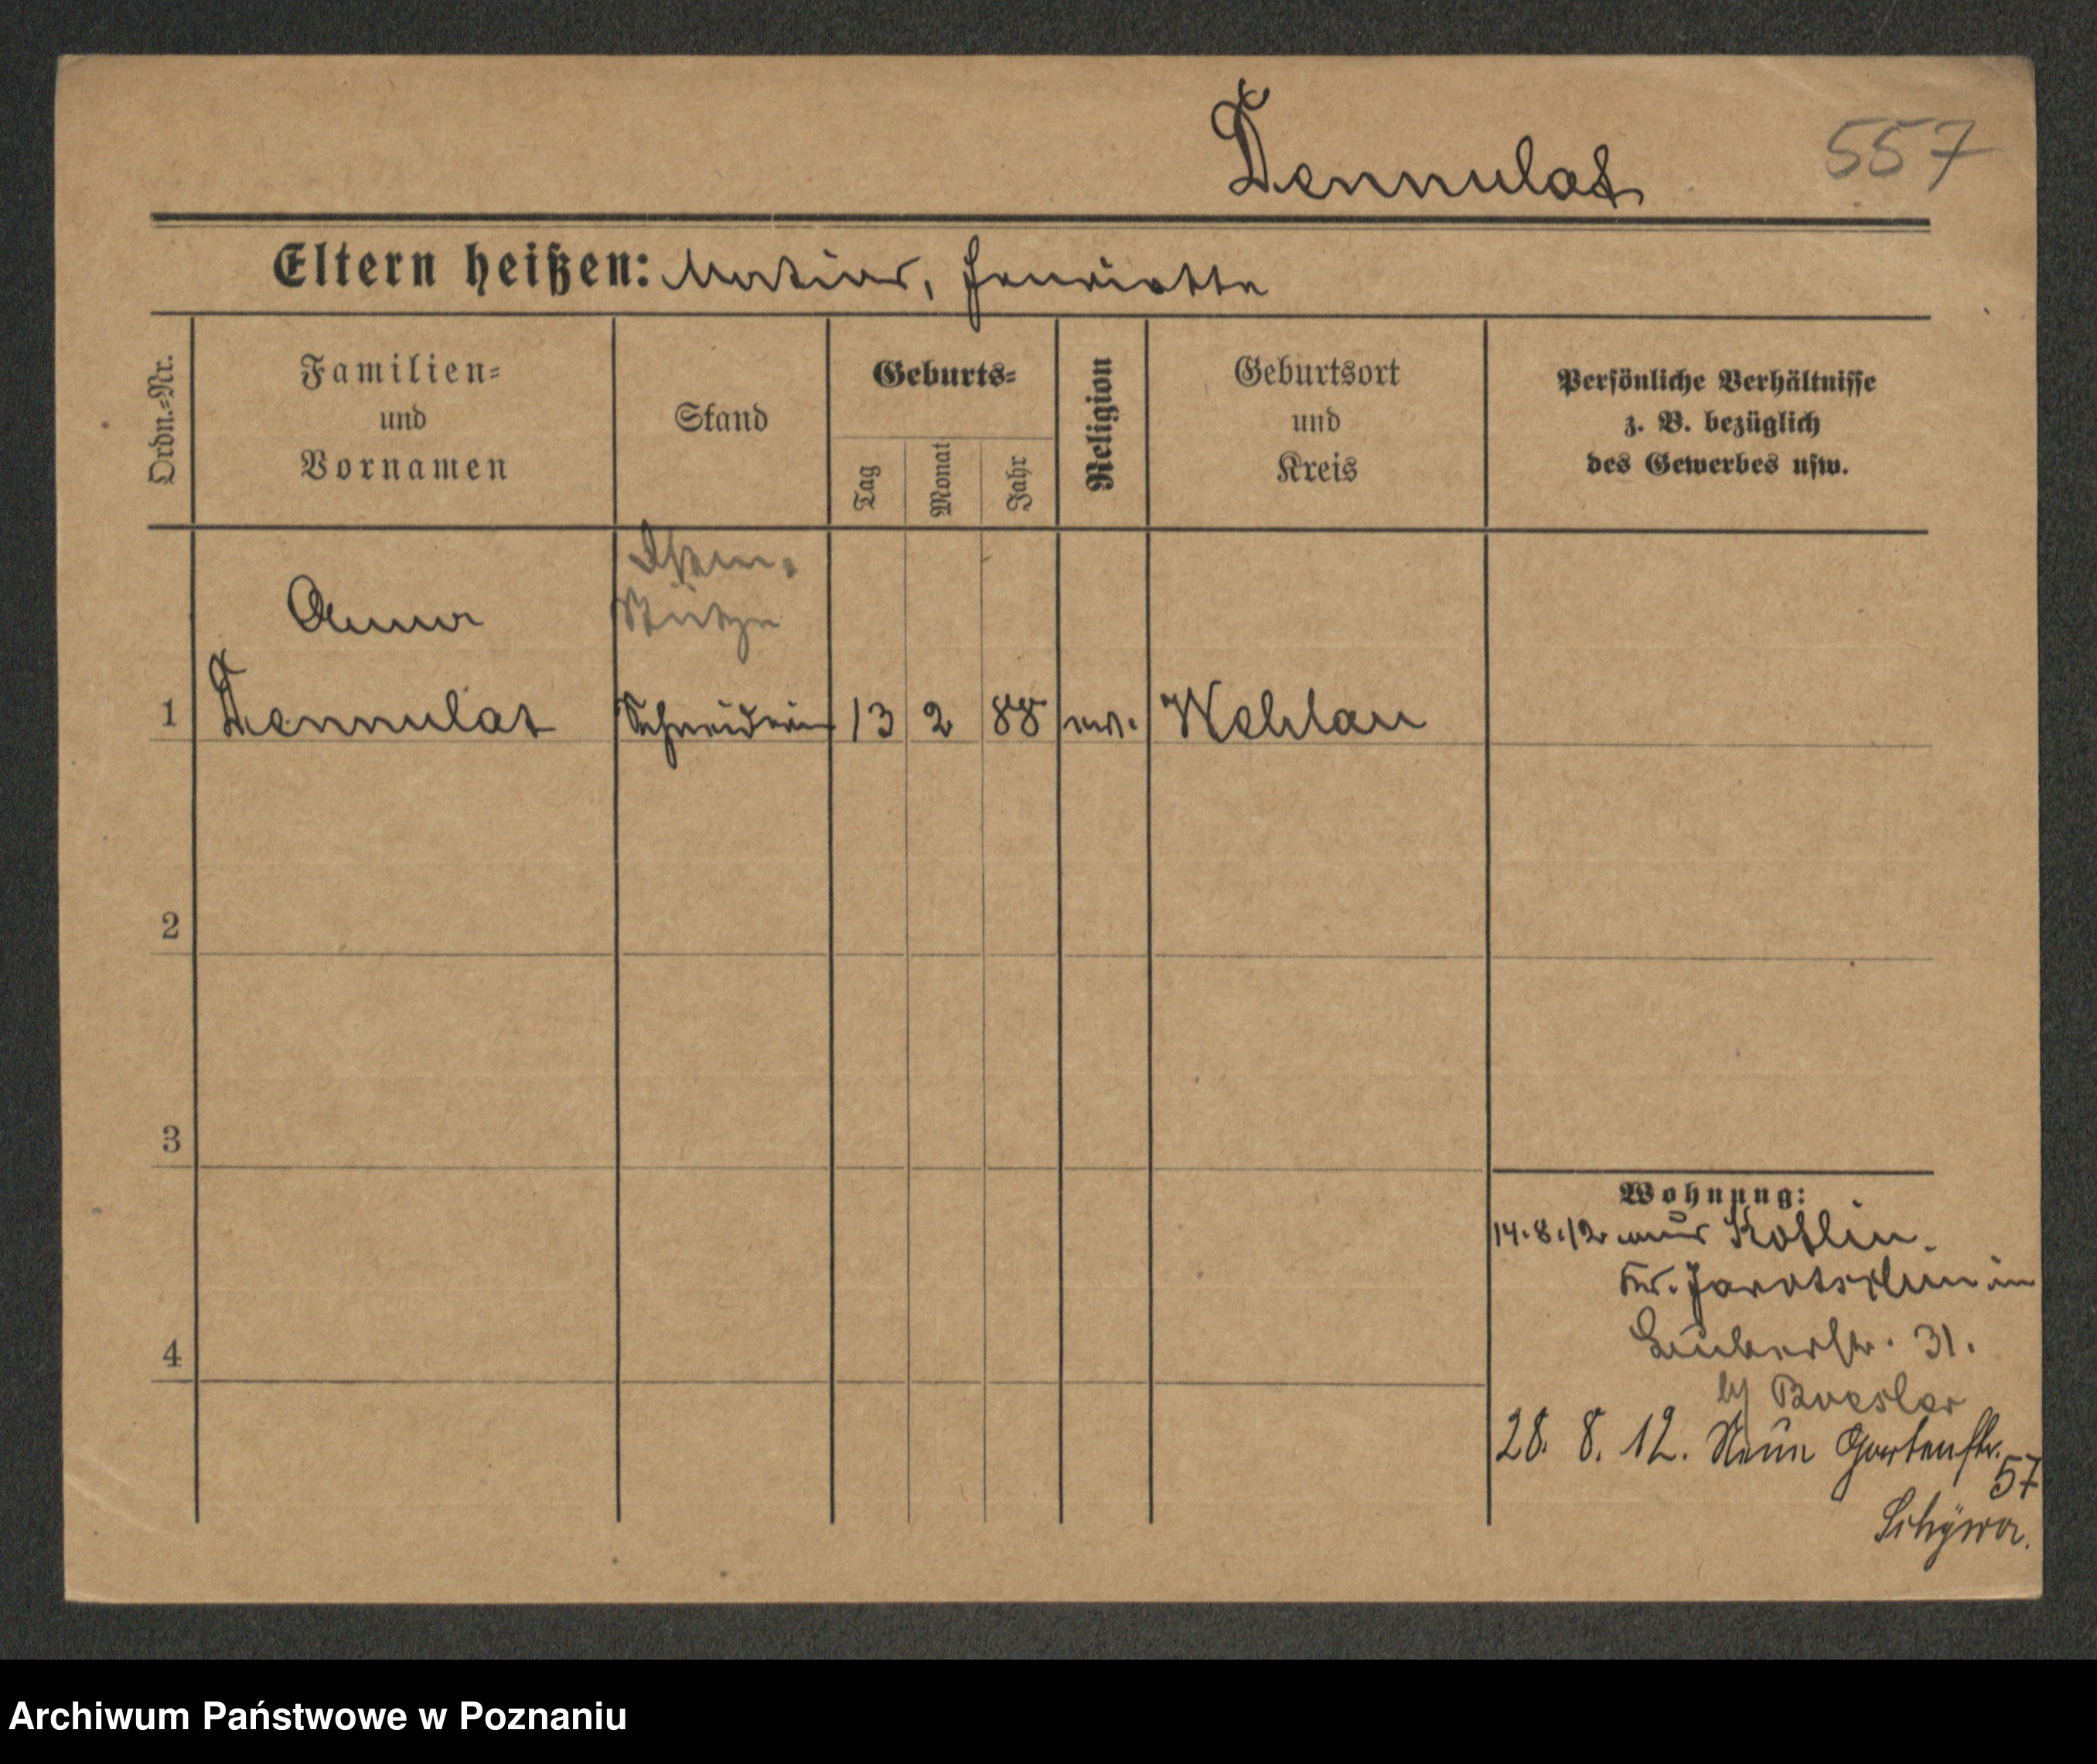 Dennulat 557
Eltern heißen: Mathias, Henriette
Ordn.=Nr.
Familien=
und
Vornamen
Stand
Geburts=
Tag
Monat
Jahr
Religion
Geburtsort
und
Kreis
Persönliche Verhältnisse
z. B. bezüglich
des Gewerbes usw.
Anna
Stütze
1 Dennulat Schneiderin 13 2 88 ev. Wehlau
2
3
4
Wohnung:
14.8.12 aus Kotlin
Kr. Jarotschin in
31.
28. 8. 12. Neue Gartenstr.
57